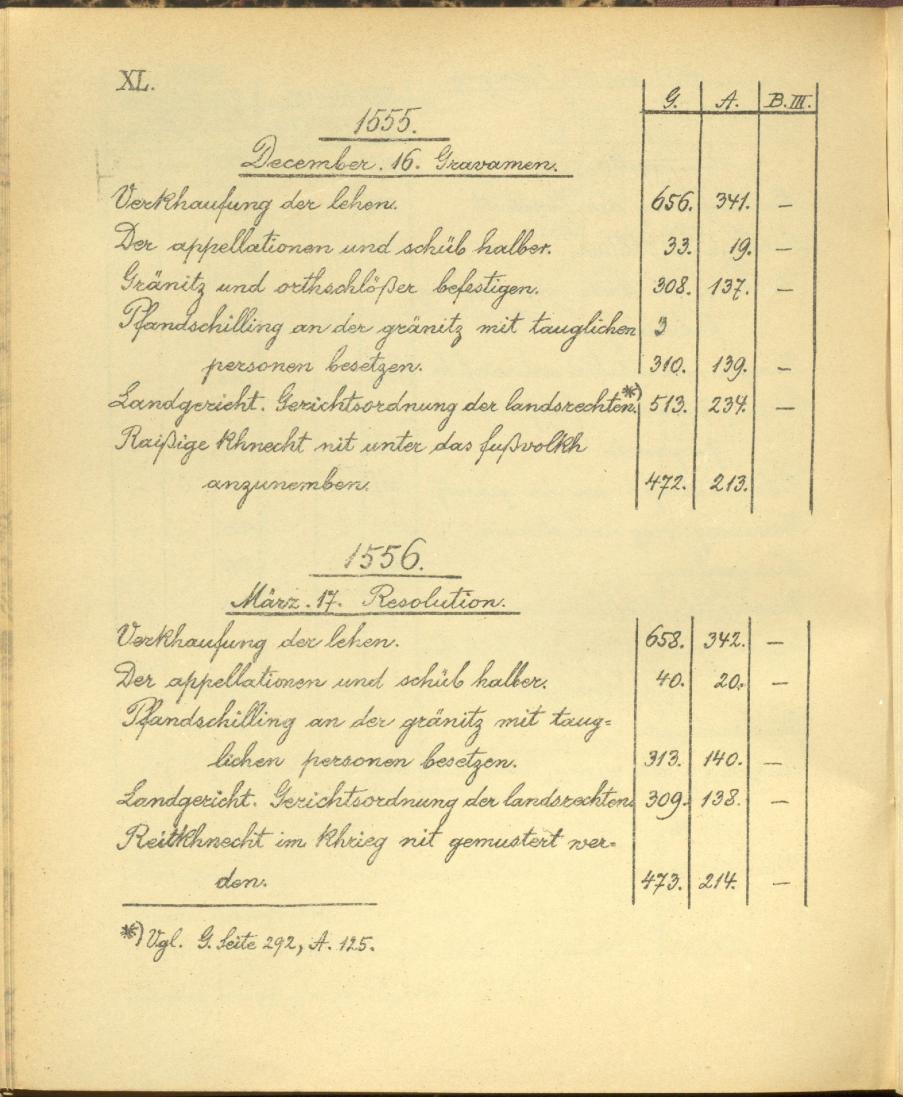 XL.
G. A. B.III.
1555.
December. 16. Gravamen.
Verkhaufung der lehen. 656. 341. —
Der appellationen und schüb halber. 33. 19. —
Gränitz und orthschlößer befestigen. 308. 137. —
Pfandschilling an der gränitz mit tauglichen 3
personen besetzen. 310. 139. —
Landgericht. Gerichtsordnung der landsrechten.*) 513. 234. —
Raißige khnecht nit unter das fußvolkh
anzunemben. 472. 213.
1556.
März. 17. Resolution.
Verkhaufung der lehen. 658. 342. —
Der appellationen und schüb halber. 40. 20. —
Pfandschilling an der gränitz mit taug=
lichen personen besetzen. 313. 140. —
Landgericht. Gerichtsordnung der landsrechten. 309. 138. —
Reitkhnecht im khrieg nit gemustert wer=
den. 473. 214. —
*) Vgl. G. Seite 292, A. 125.